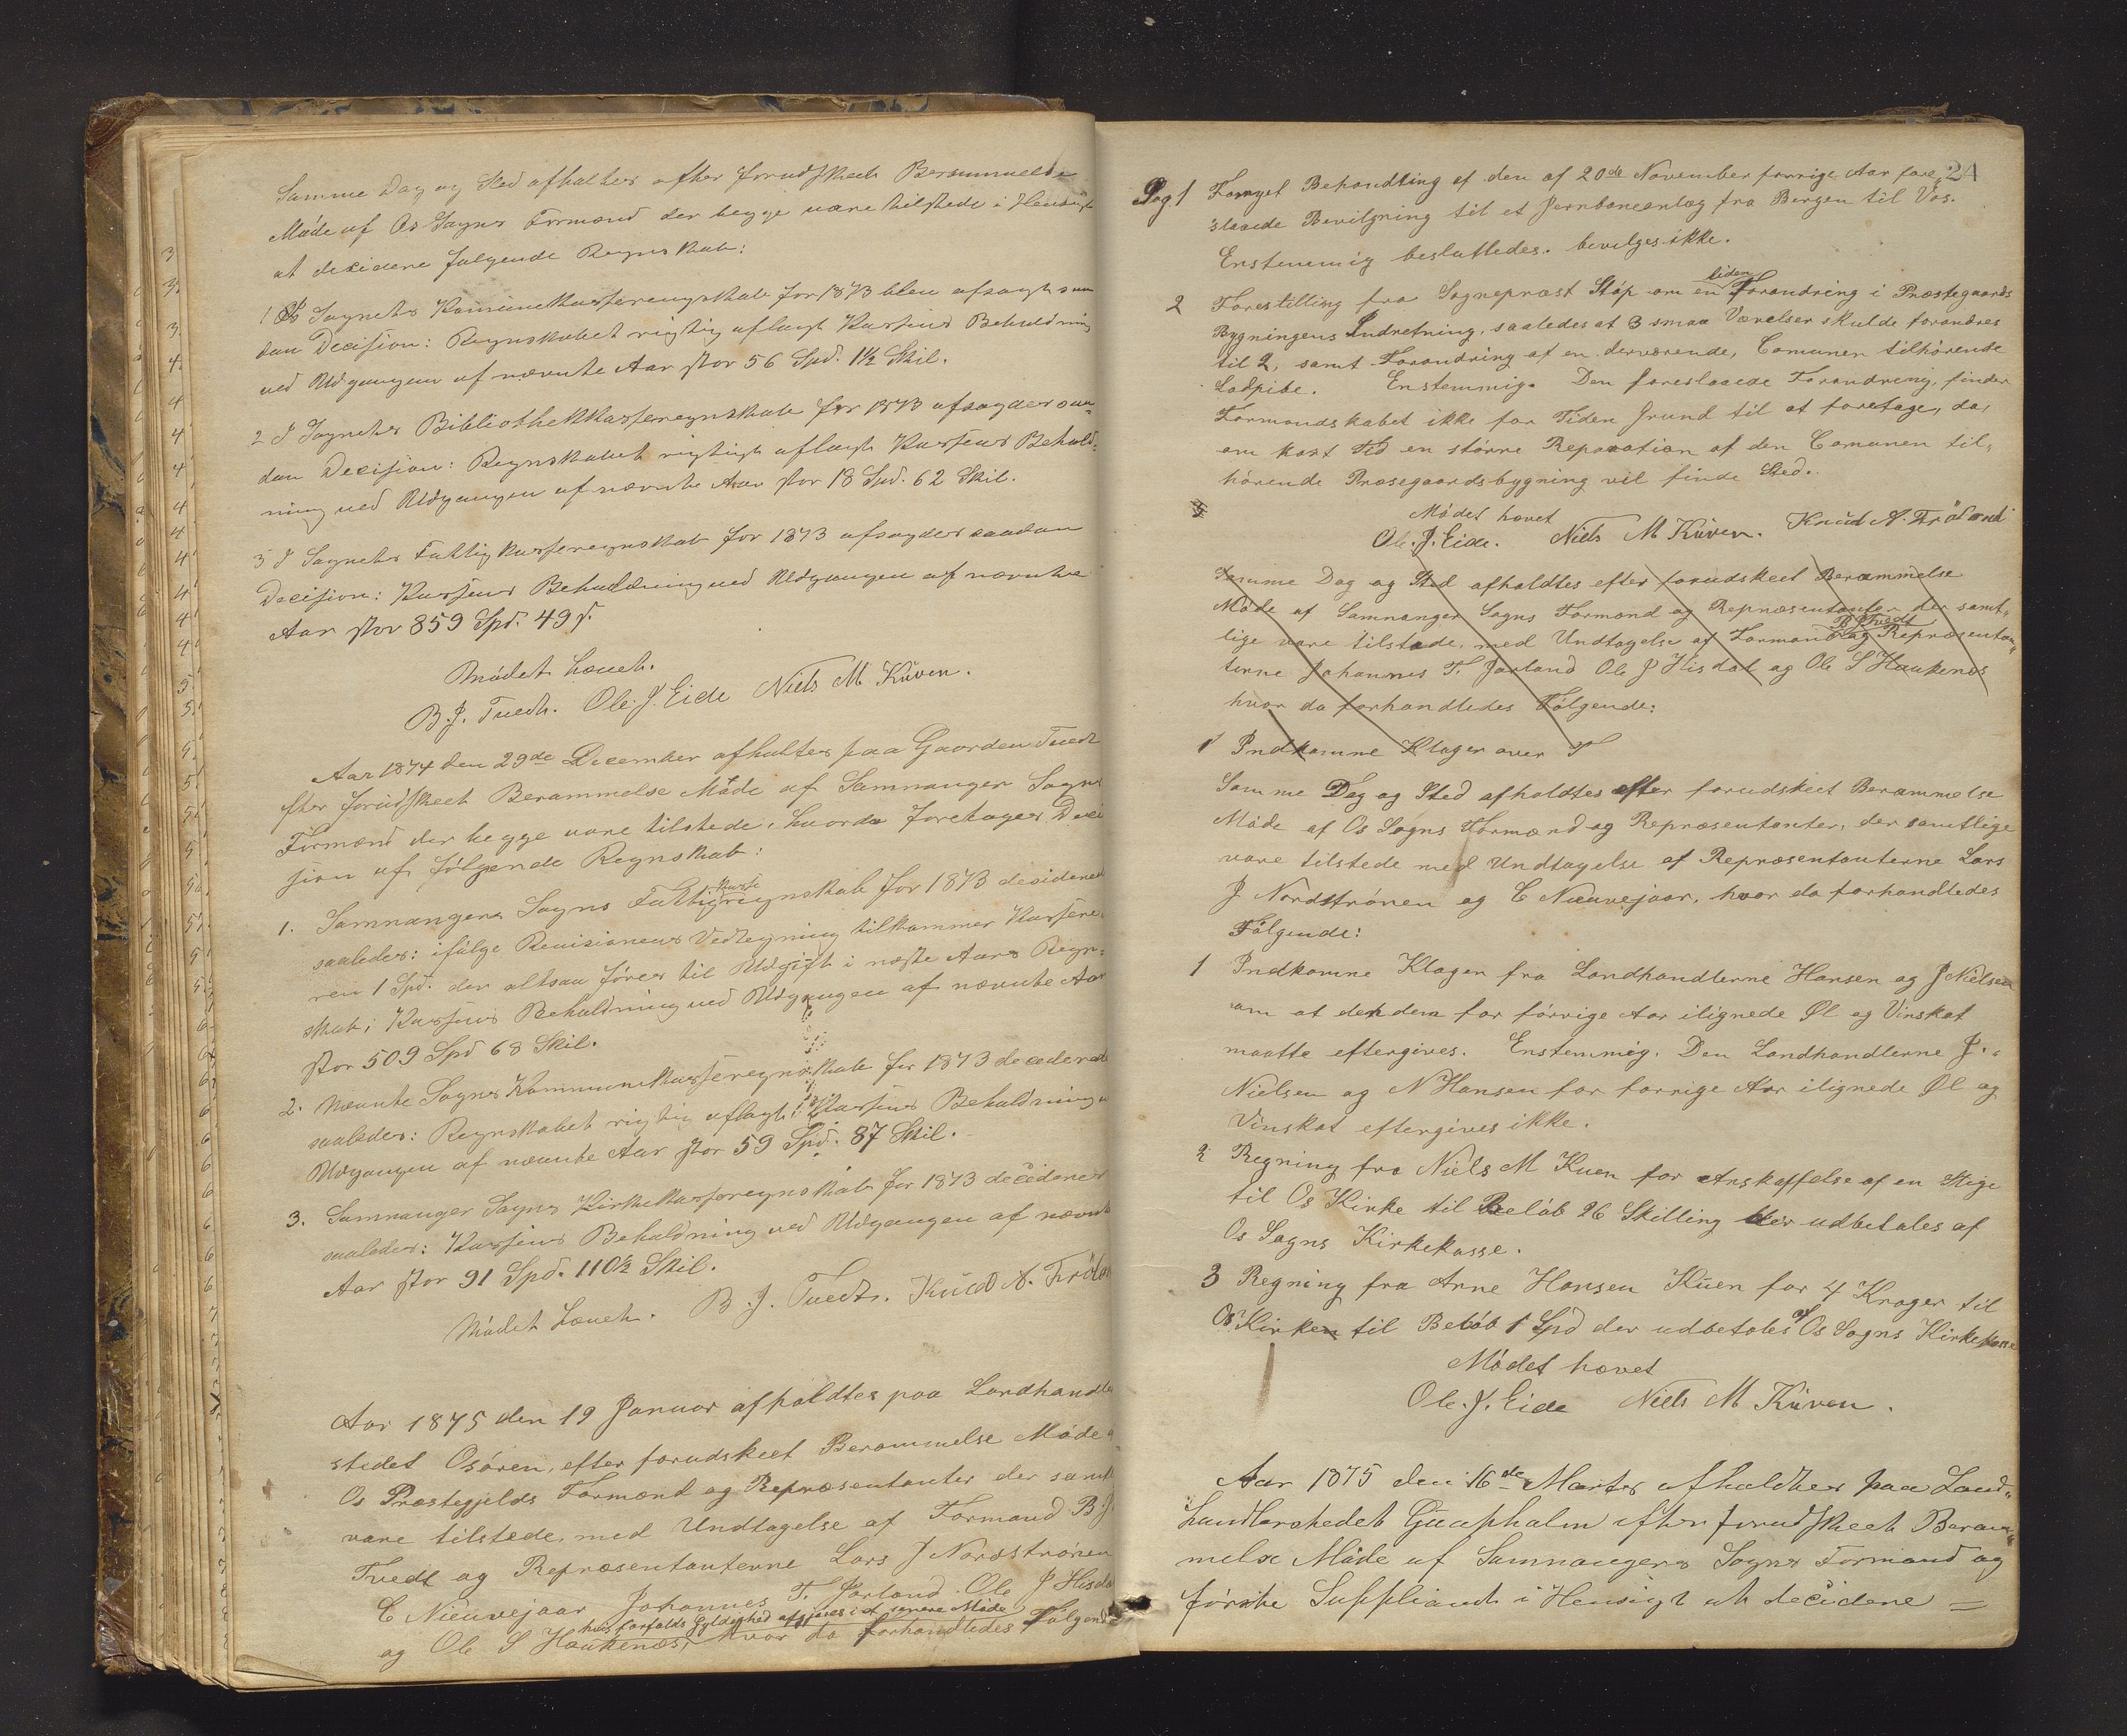 Samme Dag og Sted afholtes efter forudskeet Berammelse
Møde af Os Sogns Formænd der begge være tilstede i Hensigt
at decidere følgende Regnskab:
1 Os Sognets Kommunekasseregnskab for 1873 blev afsagt saa
dan Decision: Regnskabet rigtig aflagt Kassens Beholdning
ved Udgangen af nævnte Aar stor 56 Spd. 1½ Skil.
2 I Sognets Bibliothekkasseregnskab for 1873 afsagdes saa-
dan Decision: Regnskabet rigtigt aflagt Kassens Behold-
ning ved Udgangen af nævnte Aar stor 18 Spd. 62 Skil.
3 I Sognets Fattigkasseregnskab for 1873 afsagdes saadan
Decision: Kassens Beholdning ved Udgangen af nævnte
Aar stor 859 Spd. 49 s.
Mødet hævet.
B. J. Tvedt. Ole. J. Eide Niels M. Kuven.
Aar 1874 den 29de December afholtes paa Gaarden Tvedt
efter forudskeet Berammelse Møde af Samnanger Sogns
Formænd der begge vare tilstede, hvorda foretoges Deci
sion af følgende Regnskab:
1. Samnangers Sogns Fattigkasseregnskab for 1873 decideret
saaledes: ifølge Revisionens Vedtegning tilkommer Kassere-
ren 1 Spd. der altsaa føres til Udgift i næste Aars Regn-
skab; Kassens Beholdning ved Udgangen af nævnte Aar
stor 509 Spd 68 Skil.
2. Nævnte Sogns Kommunekasseregnskab for 1873 decideredes
saaledes: Regnskabet rigtig aflagt; Kassens Beholdning v
Udgangen af nævnte Aar stor 59 Spd. 87 Skil.
3. Samnanger Sogns Kirkekasseregnskab for 1873 decideret
saaledes: Kassens Beholdning ved Udgangen af nævnte
Aar stor 91 Spd. 110½ Skil.
Mødet hævet. B. J. Tvedt. Knud A. Frøland
Aar 1875 den 19 Januar afholdtes paa Landhandler
stedet Osøren, efter forudskeet Berammelse Møde a
Os Præstegjelds Formænd og Repræsentanter der samt
vare tilstede, med Undtagelse af Formand B. J
Tvedt og Repræsentanterne Lars J Nordstrønen
C Nieuvejaar Johannes T. Jarland Ole J Hisda
hvis forfalds Gyldighed afgjøres i et senere Møde
og Ole S Haukenæs, hvor da forhandledes Følgende
24
Sag 1 Fornyet Behandling af den af 20de November forrige Aar fore-
slaaede Bevilgning til et Jernbaneanlæg fra Bergen til Vos.
Enstemmig besluttedes. bevilges ikke.
2 Forestilling fra Sognepræst Støp om en liden Forandring i Præstegaards
Bygningens Indretning, saaledes at 3 smaa Værelser skulde forandres
til 2, samt Forandring af en derværende, Comunen tilhørende
Ladpibe. Enstemmig. Den foreslaaede Forandring, finder
Formandskabet ikke for Tiden Grund til at foretage, da,
om kort Tid en større Reparation af den Comunen til-
hørende Præsegaardsbygning vil finde Sted.
Mødet hævet
Ole. J. Eide. Niels M Kuven. Knud A. Frøland
Samme Dag og Sted afholdtes efter forudskeet Berammelse
Møde af Samnanger Sogns Formænd og Repræsentanter der samt-
lige vare tilstede, med Undtagelse af Formand B J Tvedt og Repræsentan-
terne Johannes T. Jarland Ole J Hisdal og Ole S Haukenæs
hvor da forhandledes Følgende:
1 Indkomne Klager over T
Samme Dag og Sted afholdtes efter forudskeet Berammelse
Møde af Os Sogns Formænd og Repræsentanter, der samtlige
vare tilstede med Undtagelse af Repræsentanterne Lars
J Nordstrønen og C Nieuvejaar, hvor da forhandledes
Følgende:
1 Indkomne Klagen fra Landhandlerne Hansen og J Nielsen
om at den dem for forrige Aar ilignede Øl og Vinskat
maatte eftergives. Enstemmig. Den Landhandlerne J.
Nielsen og N Hansen for forrige Aar ilignede Øl og
Vinskat eftergives ikke.
2 Regning fra Niels M Kuen for Anskaffelse af en Stige
til Os Kirke til Beløb 26 Skilling der udbetales af
Os Sogns Kirkekasse.
3 Regning fra Arne Hansen Kuen for 4 Kroger til
Os Kirken til Beløb 1 Spd der udbetales af Os Sogns Kirkekasse
Mødet hævet
Ole. J. Eide Niels M Kuven.
Aar 1875 den 16de Marts afholdtes paa Land-
handlerstedet Gaasholm efter forudskeet Beram-
melse Møde af Samnangers Sogns Formand og
første Suppliant i Hensigt at decidere =